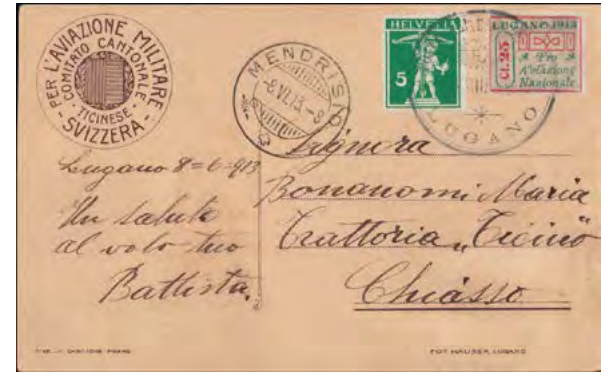 PER L'AVIAZIONE MILITARE
COMITATO CANTONALE
TICINESE
SVIZZERA
HELVETIA
5
LUGANO 1913
ct. 25
Pro
Aviazione
Nazionale
MENDRISIO
-8.VI.13.-8
LUGANO
Lugano 8=6-913
Un saluto
al volo tuo
Battista.
Signora
Bonanomi Maria
Trattoria „Ticino"
Chiasso
FOT. HAUSER, LUGANO